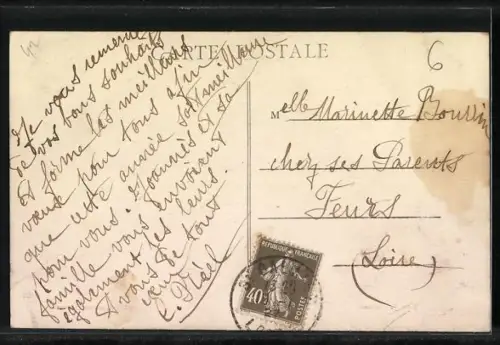 CARTE POSTALE
6
Je vous remercie
de vos bons souhaits
et forme les meilleurs
vœux pour tous afin
que cette année soit meilleure
pour vous. Joannès et sa
famille vous envoient
également les leurs.
A vous de tout
Melle Marinette
chez ses Parents
Feurs
(Loire)
REPUBLIQUE FRANCAISE
40c
POSTES